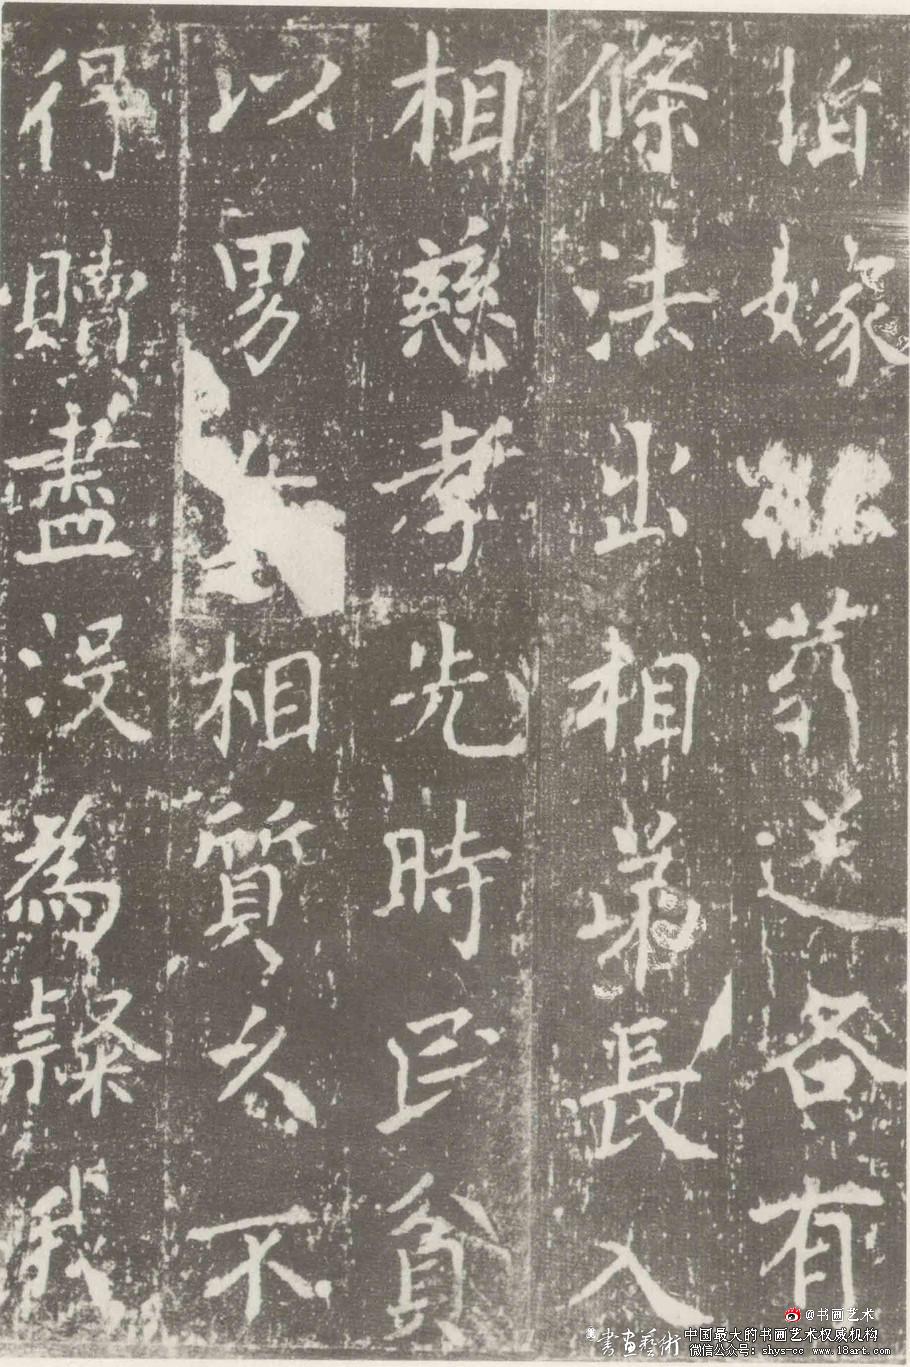 怕嫁娶葬送各有
條法出相弟長入
相慈孝先時民貧
以男女相質久不
得贖盡没為隸我
@书画艺术
書画藝術
中国最大的书画艺术权威机构
微信公众号: shys-cc www.18art.com